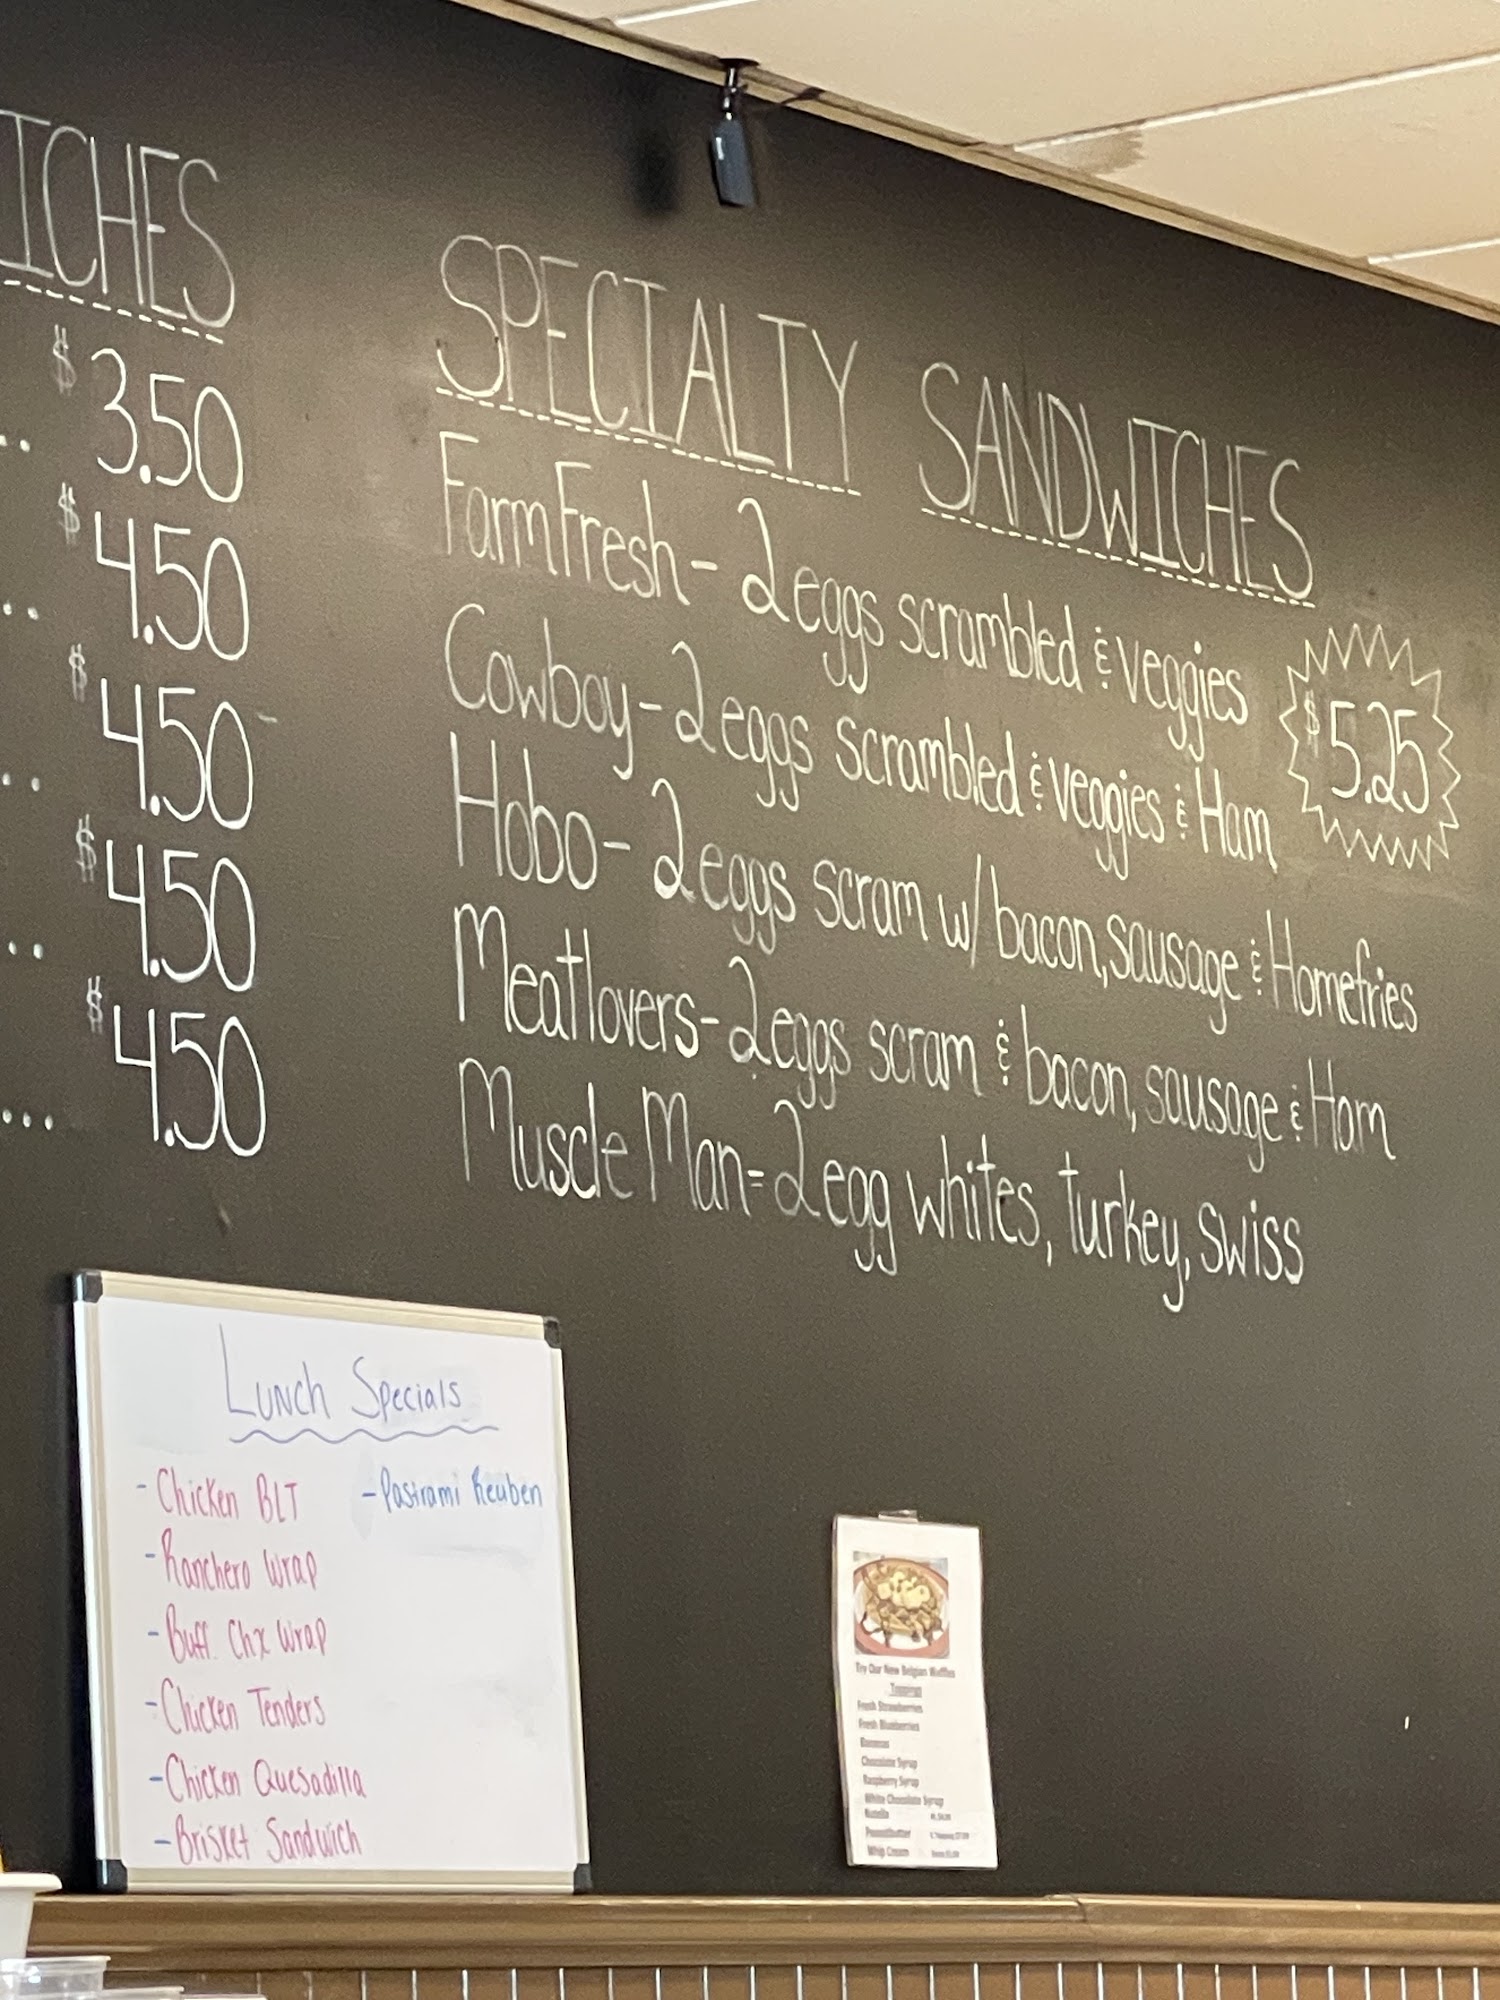 ICHES
.. $3.50
.. $4.50
.. $4.50
.. $4.50
... $4.50
SPECIALTY SANDWICHES
Farm Fresh - 2 eggs scrambled & veggies
$5.25
Cowboy - 2 eggs scrambled & veggies & Ham
Hobo - 2 eggs scram w/ bacon, sausage & Homefries
Meatlovers - 2 eggs scram & bacon, sausage & Ham
Muscle Man = 2 egg whites, turkey, swiss
Lunch Specials
- Chicken BLT
- Ranchero Wrap
- Buff. Chx Wrap
- Chicken Tenders
- Chicken Quesadilla
- Brisket Sandwich
- Pastrami Reuben
Try Our New Belgian Waffles
Toppings
Fresh Strawberries
Fresh Blueberries
Bananas
Chocolate Syrup
Raspberry Syrup
White Chocolate Syrup
Nutella
Peanutbutter
Whip Cream